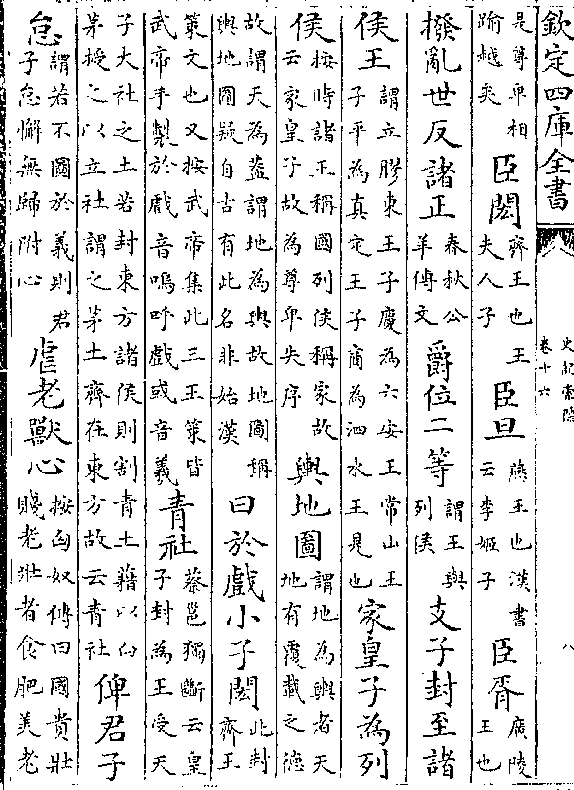 欽定四庫全書
史記索隱
卷十六
八
是尊卑相
踰越矣
臣閎
齊王也王
夫人子
臣旦
燕王也漢書
云李姬子
臣胥
廣陵
王也
撥亂世反諸正
春秋公
羊傳文
爵位二等
謂王與
列侯
支子封至諸
侯王
謂立膠東王子慶為六安王常山王
子平為真定王子商為泗水王是也
家皇子為列
侯
按時諸王稱國列侯稱家故
云家皇子故為尊卑失序
輿地圖
謂地為輿者天
地有覆載之德
故謂天為蓋謂地為輿故地圖稱
輿地圖疑自古有此名非始漢
曰於戲小子閎
此封
齊王
策文也又按武帝集此三王策皆
武帝手製於戲音嗚呼戲或音義
青社
蔡邕獨斷云皇
子封為王受天
子大社之土若封東方諸侯則割青土藉以白
茅授之以立社謂之茅土齊在東方故云青社
俾君子
怠
謂若不圖於義則君
子怠懈無歸附心
虐老獸心
按匈奴傳曰國貴壯
賤老壯者食肥美老